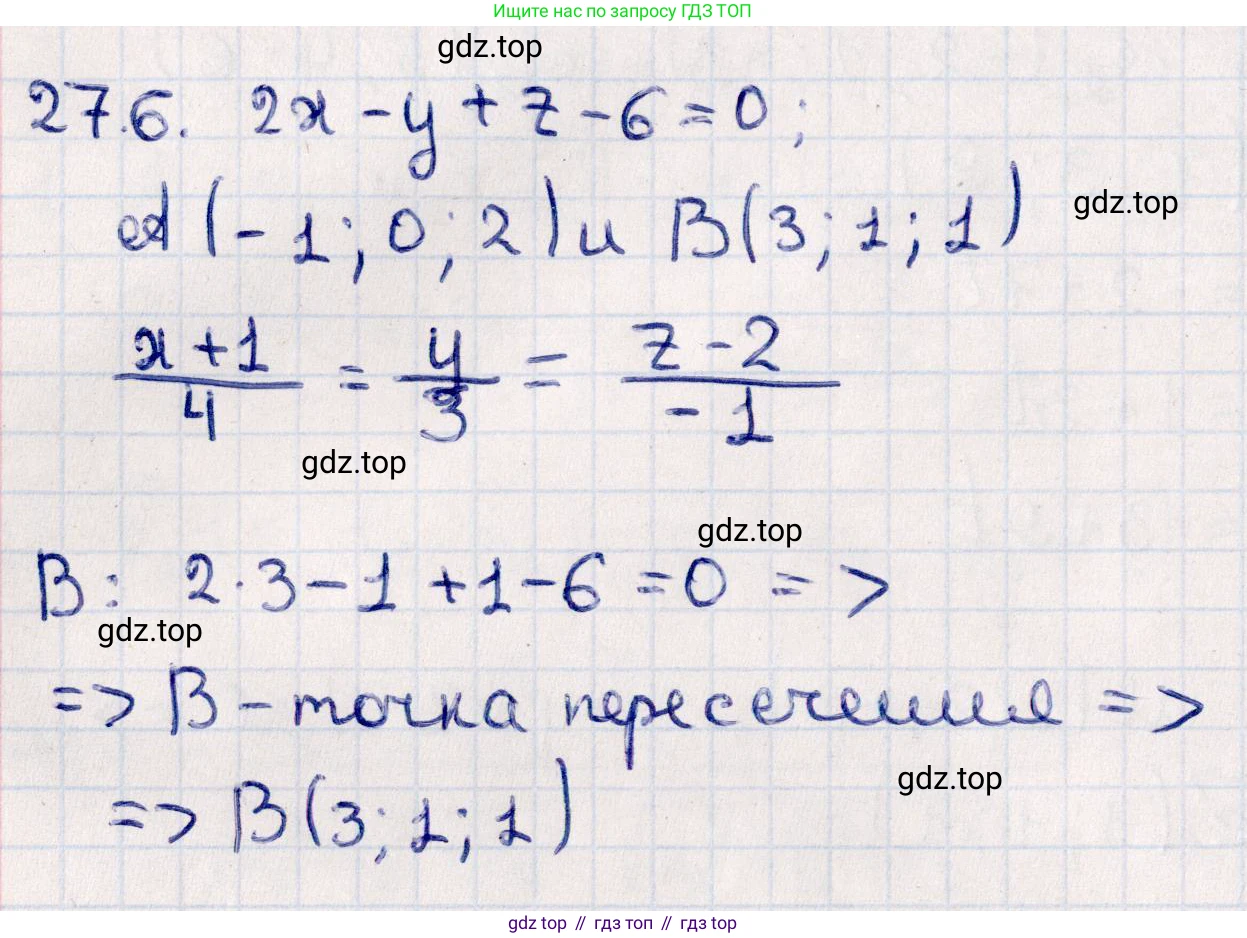 Ищите нас по запросу ГДЗ ТОП
gdz.top
27.6. 2x - y + z - 6 = 0;
A(-1; 0; 2) и B(3; 1; 1)
gdz.top
(x+1)/4 = y/3 = (z-2)/(-1)
gdz.top
gdz.top
B: 2·3 - 1 + 1 - 6 = 0 =>
gdz.top
=> B - точка пересечения =>
gdz.top
=> B(3; 1; 1)
gdz top // гдз топ // гдз top